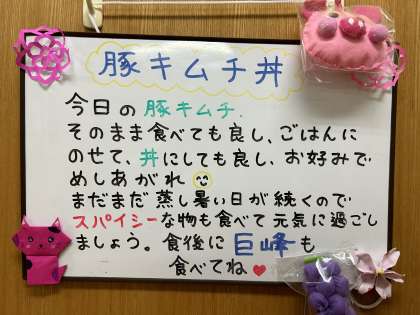 豚キムチ丼
今日の豚キムチ.
そのまま食べても良し、ごはんに
のせて、丼にしても良し、お好みで
めしあがれ
まだまだ蒸し暑い日が続くので
スパイシーな物も食べて元気に過ごし
ましょう。食後に巨峰も
食べてね